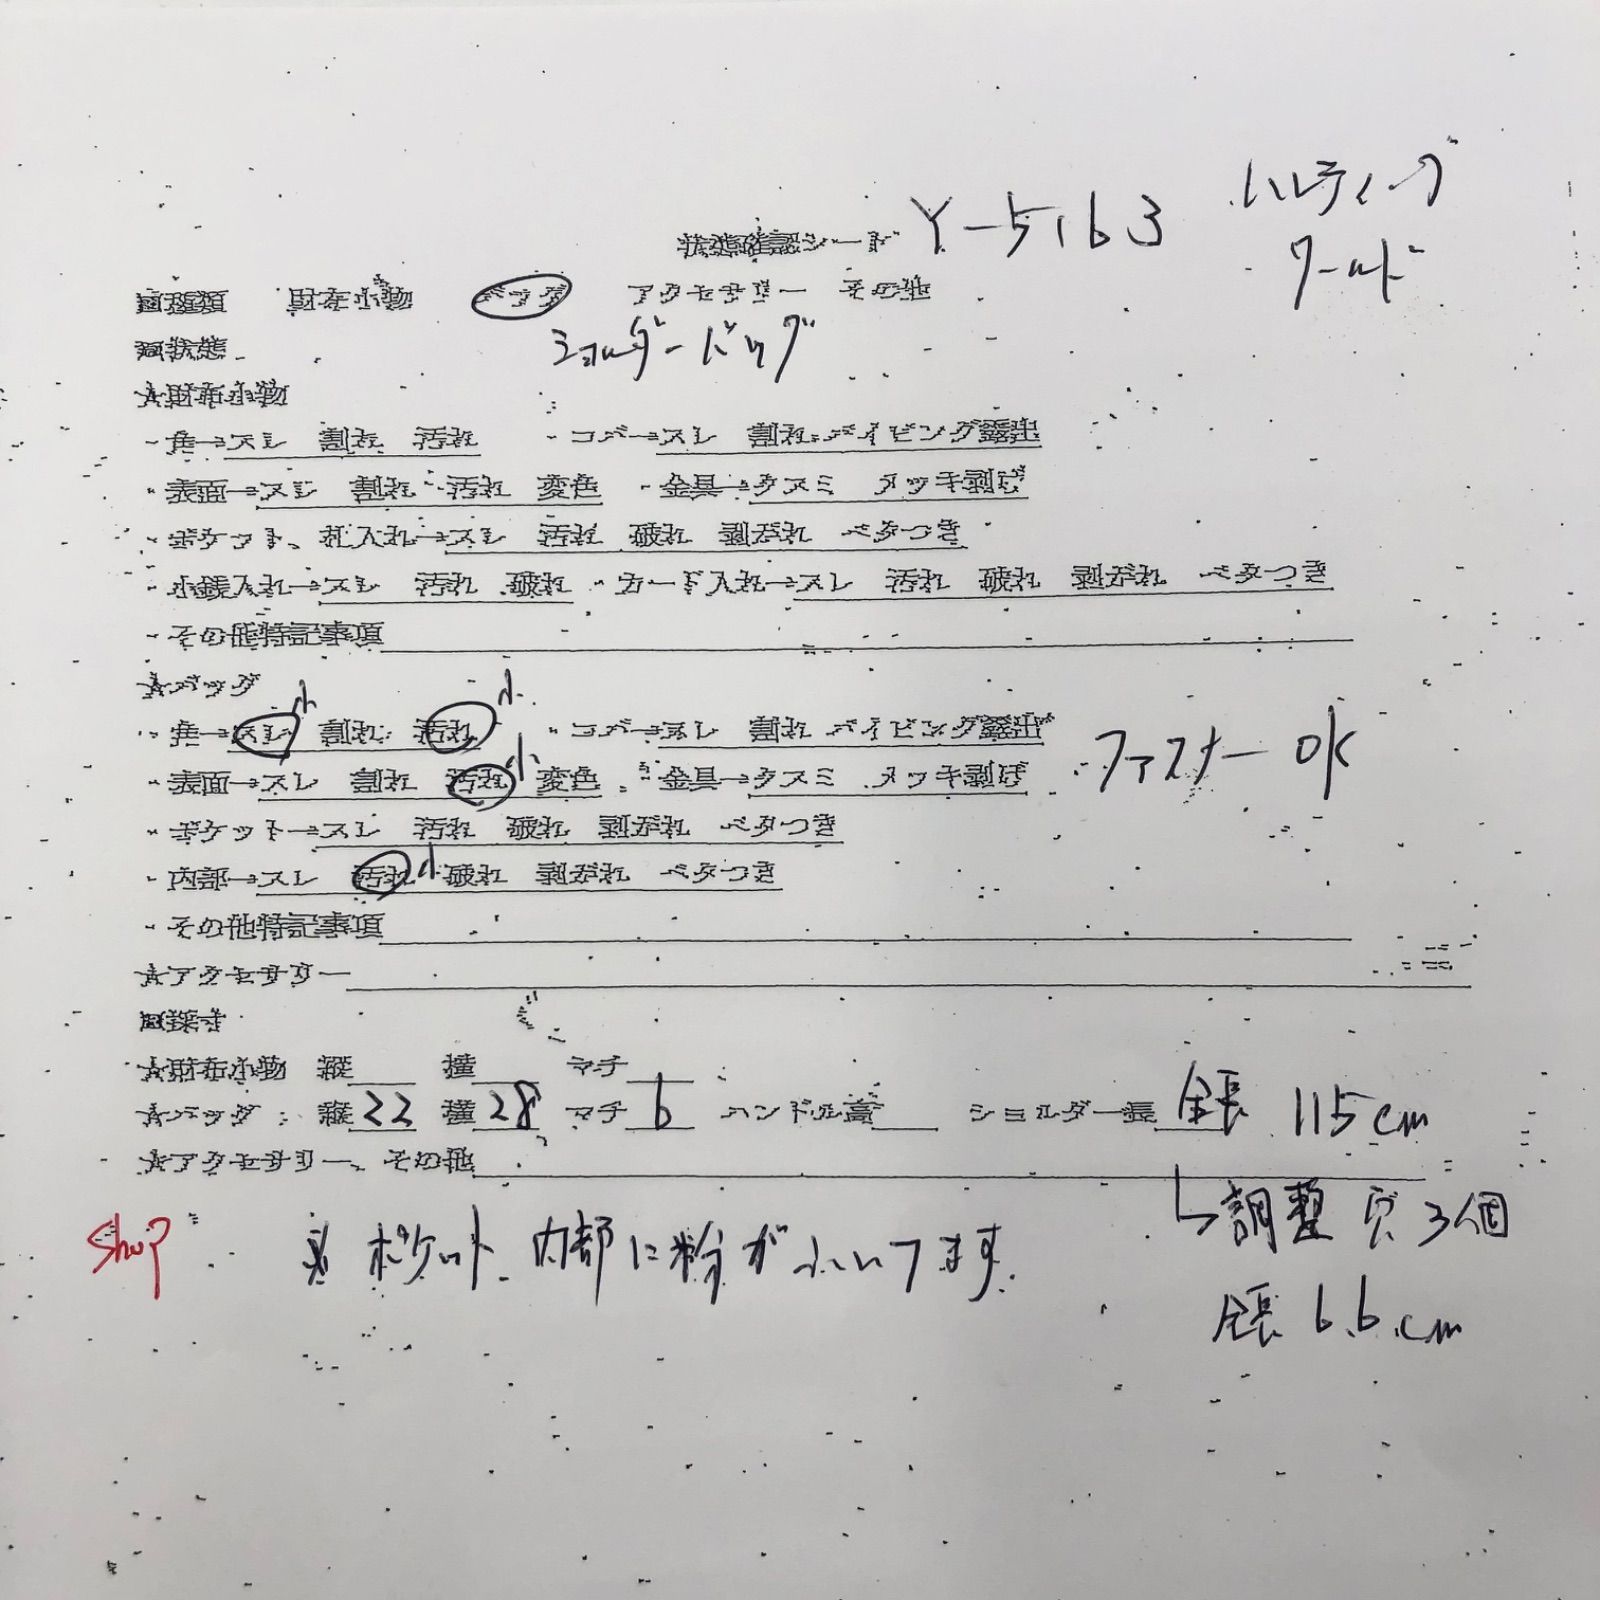 状態確認シート Y-5163 ハンティング
ワールド
回種類 財布小物 バッグ アクセサリー その他
回状態 ショルダーバッグ
★財布小物
・角→スレ 割れ 汚れ ・コバ→スレ 割れ パイピング露出
・表面→スレ 割れ 汚れ 変色 ・金具→クスミ メッキ剥げ
・ポケット、札入れ→スレ 汚れ 破れ 剥がれ ベタつき
・小銭入れ→スレ 汚れ 破れ ・カード入れ→スレ 汚れ 破れ 剥がれ ベタつき
・その他特記事項
★バッグ
・角→スレ 小 割れ 汚れ 小 ・コバ→スレ 割れ パイピング露出
・表面→スレ 割れ 汚れ 小 変色 ・金具→クスミ メッキ剥げ ファスナー OK
・ポケット→スレ 汚れ 破れ 剥がれ ベタつき
・内部→スレ 汚れ 小 破れ 剥がれ ベタつき
・その他特記事項
★アクセサリー
回採寸
★財布小物 縦 横 マチ
★バッグ 縦22 横28 マチ6 ハンドル高 ショルダー長 全長 115cm
★アクセサリー、その他
↳調整 穴 3個
Shop ※ポケット、内部に粉がふいてます。
全長 6.6cm